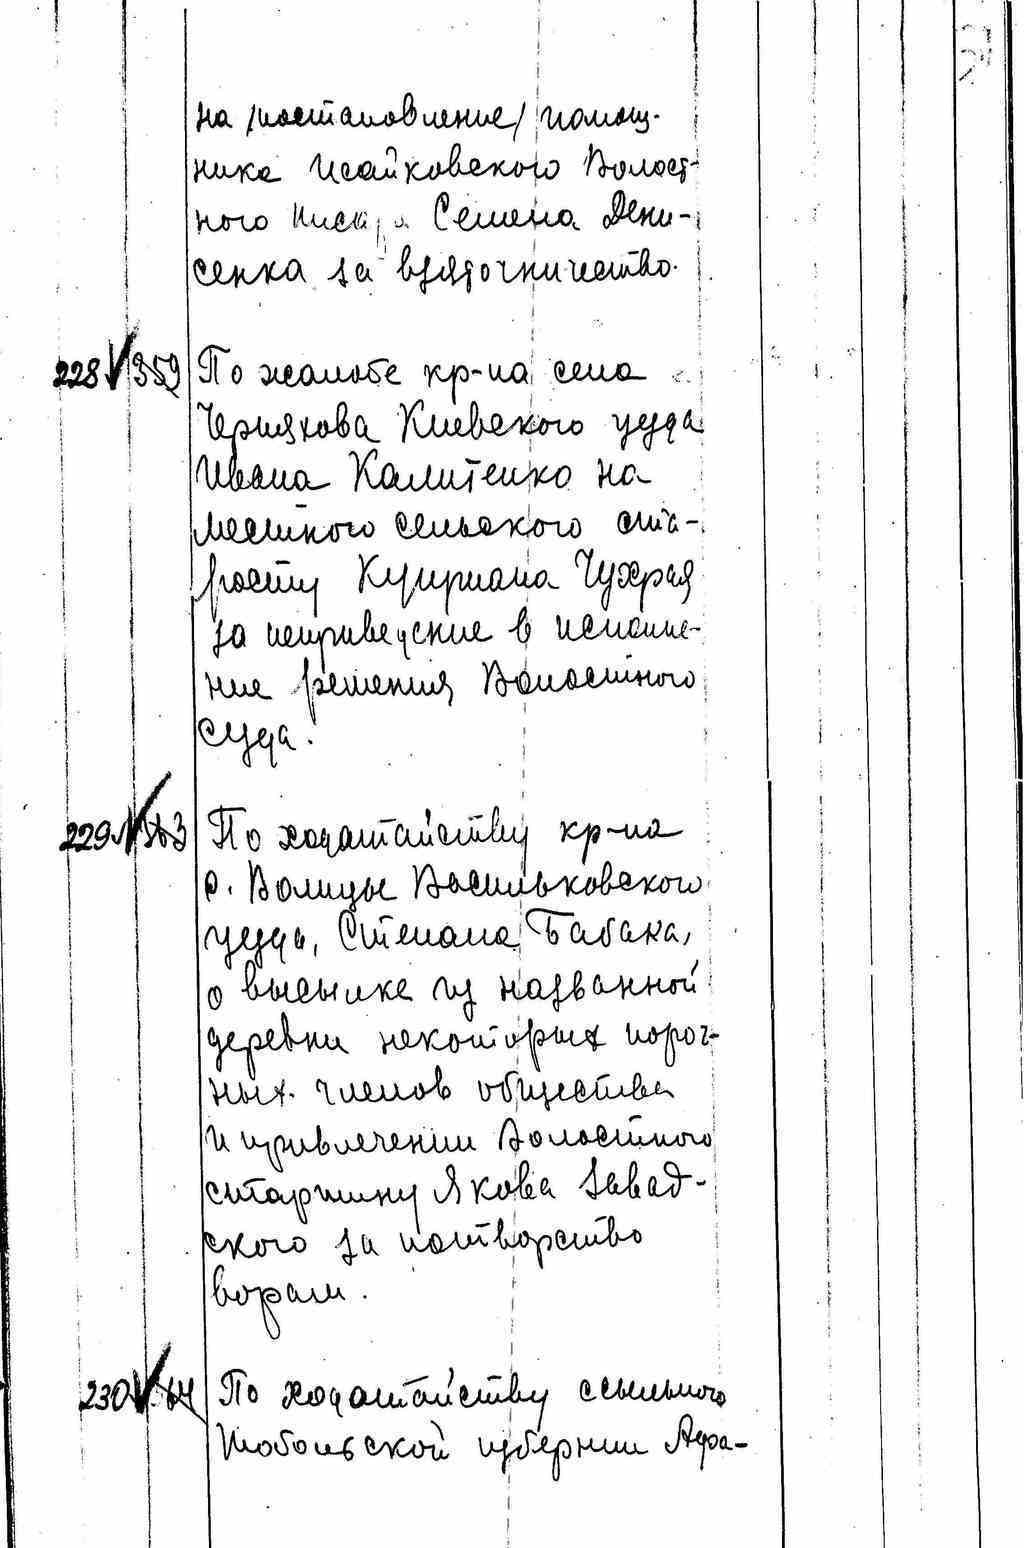 на /постановление/ помощ-
ника Исайковского Волост-
ного писаря Семена Дени-
сенка за взяточничество.
228 359 По жалобе кр-на села
Черняхова Киевского уезда
Ивана Калитенко на
местного сельского ста-
росту Куприана Чухрая
за неприведение в исполне-
ние решения Волостного
суда.
229 По ходатайству кр-на
с. Волицы Васильковского
уезда, Степана Бабака,
о высылке из названной
деревни некоторых пороч-
ных членов общества
и привлечении Волостного
старшину Якова Завад-
ского за потворство
ворам.
230 По ходатайству ссыльного
Тобольской губернии Афа-